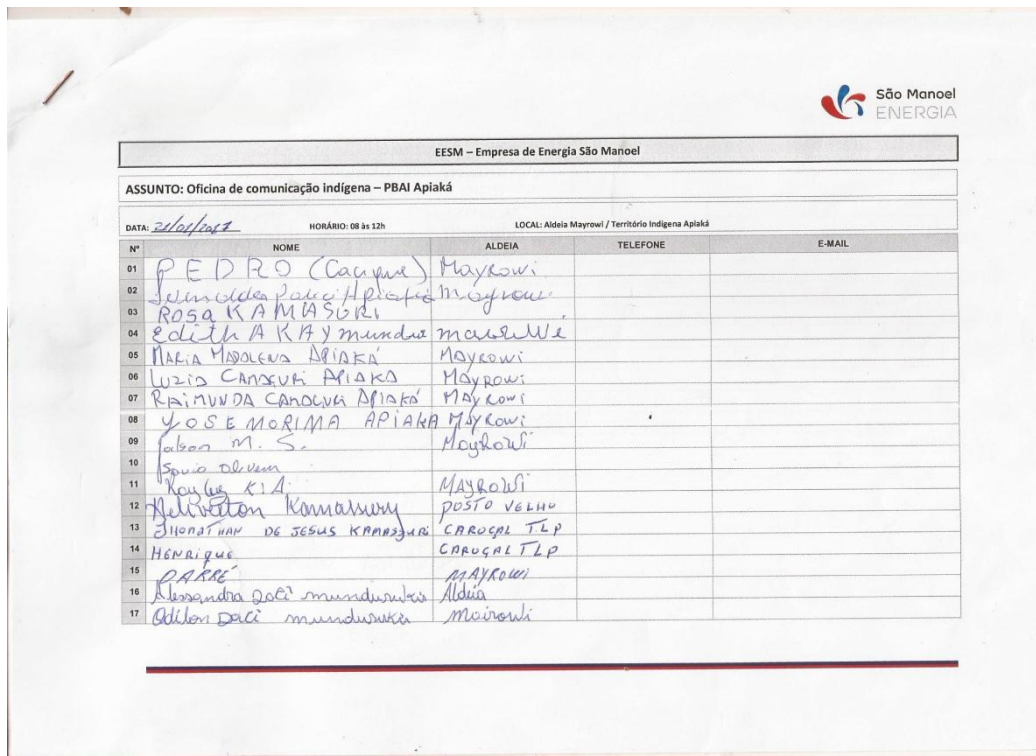 São Manoel
ENERGIA
EESM – Empresa de Energia São Manoel
ASSUNTO: Oficina de comunicação indígena – PBAI Apiaká
DATA: HORÁRIO: 08 às 12h LOCAL: Aldeia Mayrowi / Território Indígena Apiaká
Nº NOME ALDEIA TELEFONE E-MAIL
01 PEDRO (Cacique) Mayrowi
02 Mayrowi
03 ROSA KAMASURI
04 Edith AKAY mundu
05 MARIA MADALENA APIAKÁ MAYROWI
06 LUZIA CAMAÇURI APIAKA MAYROWI
07 RAIMUNDA CAMAÇURI APIAKÁ MAYROWI
08 YOSE MORIMA APIAKA MAYROWI
09 M. S. MayRoWi
10
11 MAYROWI
12 Kamassury POSTO VELHO
13 JHONATHAN DE JESUS KAMASSURI CAROÇAL TLP
14 HENRIQUE CAROÇAL TLP
15 MAYROWI
16 Alessandra munduruku Aldeia
17 Odilon munduruku Mairowi